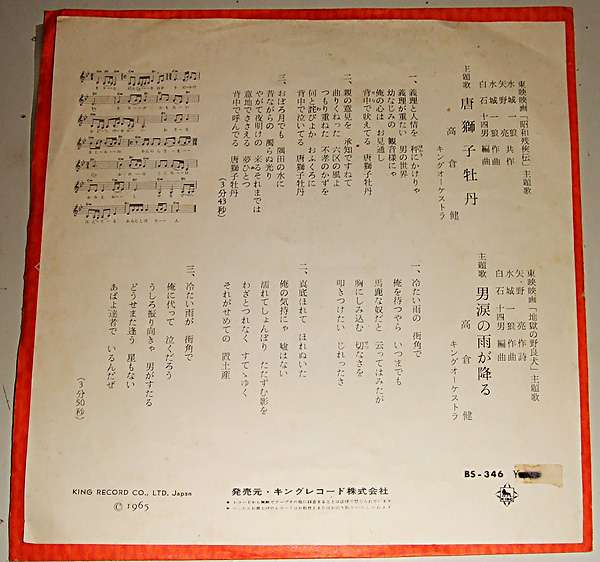 東映映画「昭和残俠伝」主題歌
水城一狼 共作
矢野 亮
水城一狼 作曲
白石十四男 編曲
主題歌 唐獅子牡丹
高倉 健
キングオーケストラ
一、義理と人情を 秤にかけりゃ
義理が重たい 男の世界
幼なじみの 観音様にゃ
俺の心は お見通し
背中で吠えてる 唐獅子牡丹
二、親の意見を 承知ですねて
曲りくねった 六区の風よ
つもり重ねた 不孝のかずを
何と詫びよか おふくろに
背中で泣いてる 唐獅子牡丹
三、おぼろ月でも 隅田の水に
昔ながらの 濁らぬ光り
やがて夜明けの 来るそれまでは
意地でささえる 夢ひとつ
背中で呼んでる 唐獅子牡丹
(3分43秒)
東映映画「地獄の野良犬」主題歌
矢野 亮 作詩
水城一狼 作曲
白石十四男 編曲
主題歌 男涙の雨が降る
高倉 健
キングオーケストラ
一、冷たい雨の 街角で
俺を待つやら いつまでも
馬鹿な奴だと 云ってはみたが
胸にしみ込む 切なさを
叩きつけたい じれったさ
二、真底ほれて ほれぬいた
俺の気持にゃ 嘘はない
濡れてしょんぼり たたずむ影を
わざとつれなく すてゝゆく
それがせめての 置土産
三、冷たい雨が 街角で
俺に代って 泣くだろう
うしろ振り向きゃ 男がすたる
どうせまた逢う 星もない
あばよ達者で いるんだぜ
(3分50秒)
BS-346 Y
KING RECORD CO., LTD. Japan
© 1965
発売元・キングレコード株式会社